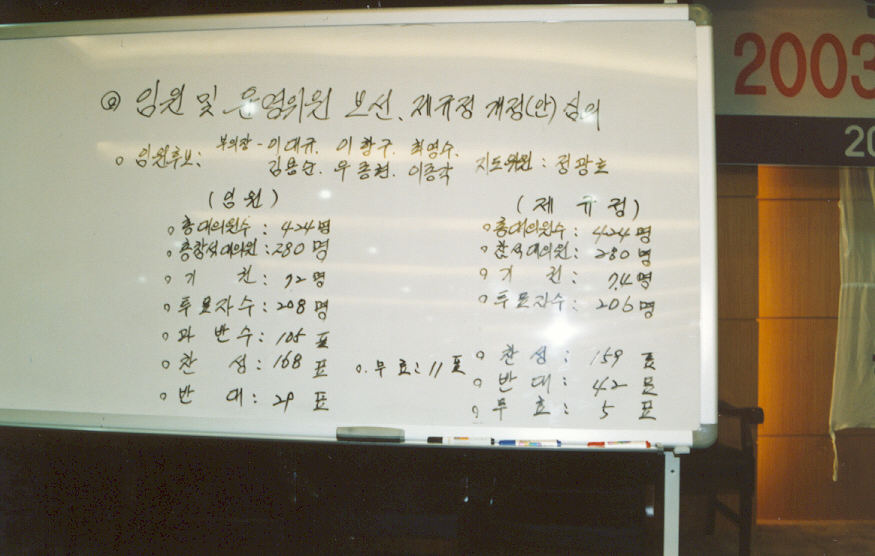 2003
20
@ 임원 및 운영위원 보선, 제규정 개정(안) 심의
o 임원후보: 부의장 - 이대규. 이항구. 최영수.
김용순. 우종현. 이종각 지도위원 : 정광호
(임원)
o 총대의원수 : 424명
o 총참석대의원 : 280명
o 기 천 : 72명
o 투표자수 : 208명
o 과반수 : 105표
o 찬 성 : 168표
o 반 대 : 29표
o. 무효 : 11표
(제규정)
o 총대의원수 : 424명
o 참석대의원 : 280명
o 기 천 : 74명
o 투표자수 : 206명
o 찬 성 : 159표
o 반 대 : 42표
o 무 효 : 5표